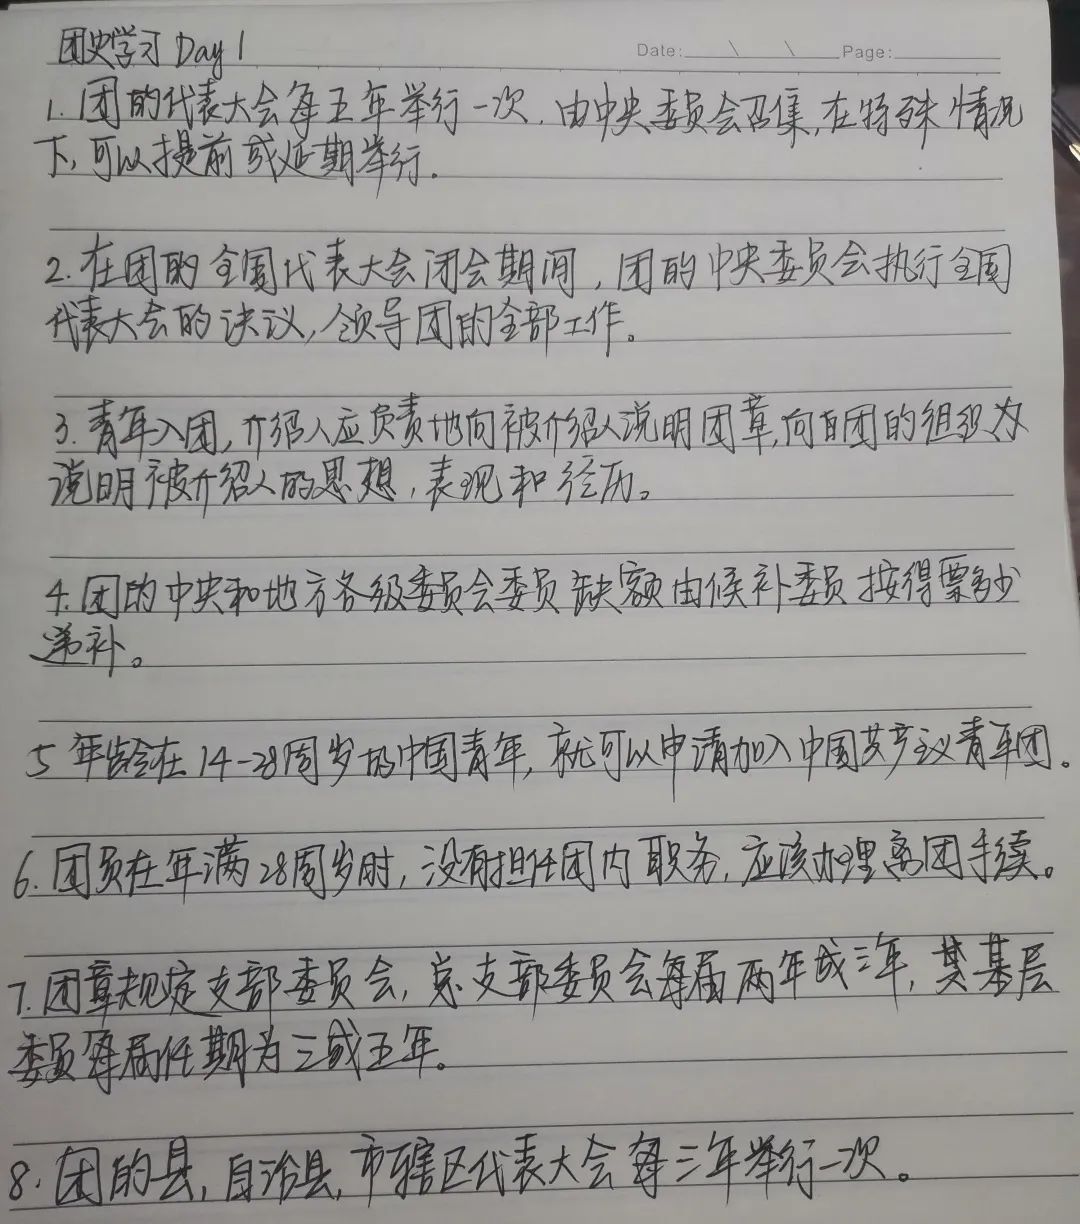 团史学习 Day 1
Date: \ \ Page:
1. 团的代表大会每五年举行一次,由中央委员会召集,在特殊情况
下,可以提前或延期举行.
2. 在团的全国代表大会闭会期间,团的中央委员会执行全国
代表大会的决议,领导团的全部工作。
3. 青年入团,介绍人应负责地向被介绍人说明团章,向团的组织
说明被介绍人的思想,表现和经历。
4. 团的中央和地方各级委员会委员缺额由候补委员按得票多少
递补。
5 年龄在14-28周岁的中国青年,就可以申请加入中国共产主义青年团。
6. 团员在年满28周岁时,没有担任团内职务,应该办理离团手续。
7. 团章规定支部委员会,总支部委员会每届两年或三年,其基层
委员每届任期为三或五年。
8. 团的县,自治县,市辖区代表大会每三年举行一次。